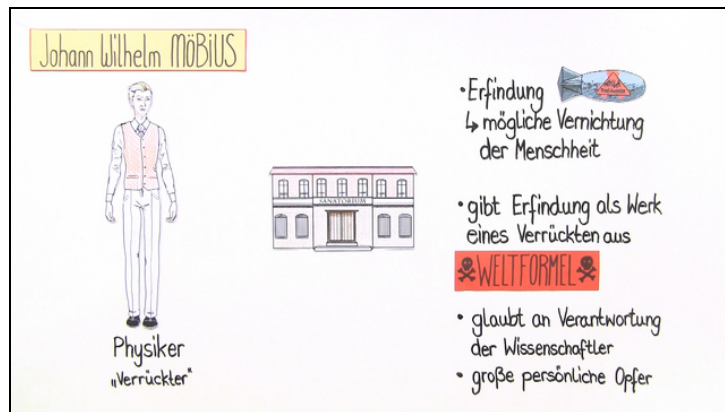 Johann Wilhelm MÖBIUS
Physiker
"Verrückter"
SANATORIUM
• Erfindung
↳ mögliche Vernichtung
der Menschheit
• gibt Erfindung als Werk
eines Verrückten aus
WELTFORMEL
• glaubt an Verantwortung
der Wissenschaftler
• große persönliche Opfer